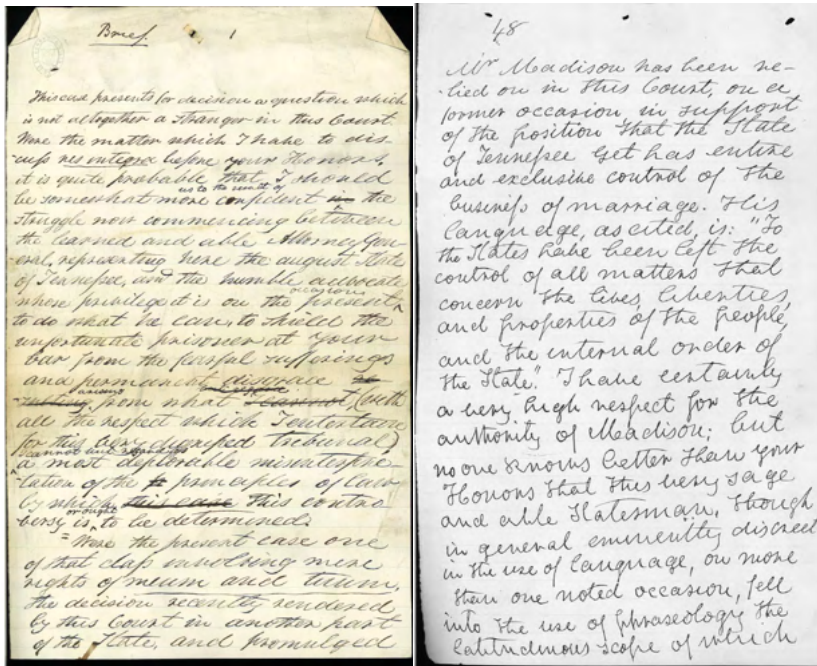 Brief. 1
This case presents for decision a question which
is not altogether a stranger in this Court.
Were the matter which I have to dis-
cuss res integra before your Honors,
it is quite probable that I should
as to the result of
be somewhat more confident in the
struggle now commencing between
the learned and able Attorney Gen-
eral, representing here the august State
of Tennessee, and the humble advocate
occasion
whose privilege it is on the present
to do what he can, to shield the
unfortunate prisoner at your
bar from the fearful sufferings
and permanent disgrace
arising from what I cannot, (with
all the respect which I entertain
for this very dignified tribunal)
cannot but regard as
a most deplorable misinterpre-
tation of the principles of law
by which this case this contro-
or ought
versy is to be determined.
Were the present case one
of that class involving mere
rights of meum and tuum,
the decision recently rendered
by this Court in another part
of the State, and promulged
48
Mr Madison has been re-
lied on in this Court, on a
former occasion, in support
of the position that the State
of Tennessee yet has entire
and exclusive control of the
business of marriage. His
language, as cited, is: "To
the States have been left the
control of all matters that
concern the lives, liberties,
and properties of the people,
and the internal order of
the State." I have certainly
a very high respect for the
authority of Madison; but
no one knows better than your
Honors that this very sage
and able Statesman, though
in general eminently discreet
in the use of language, on more
than one noted occasion, fell
into the use of phraseology the
latitudinous scope of which